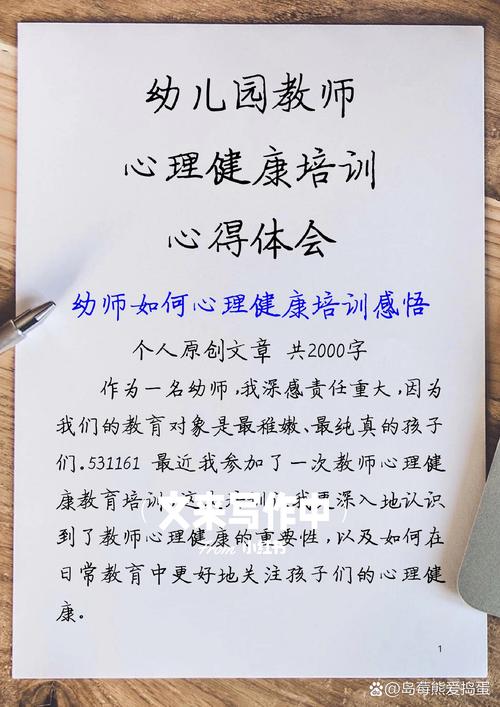 幼儿园教师
心理健康培训
心得体会
幼师如何心理健康培训感悟
个人原创文章 共2000字
作为一名幼师,我深感责任重大,因为
我们的教育对象是最稚嫩、最纯真的孩子
们.531161 最近我参加了一次教师心理健
康教育培训 我更深入地认识
到了教师心理健康的重要性,以及如何在
日常教育中更好地关注孩子们的心理健
康。
(文来写作中)
from 小红书
1
@岛莓熊爱捣蛋